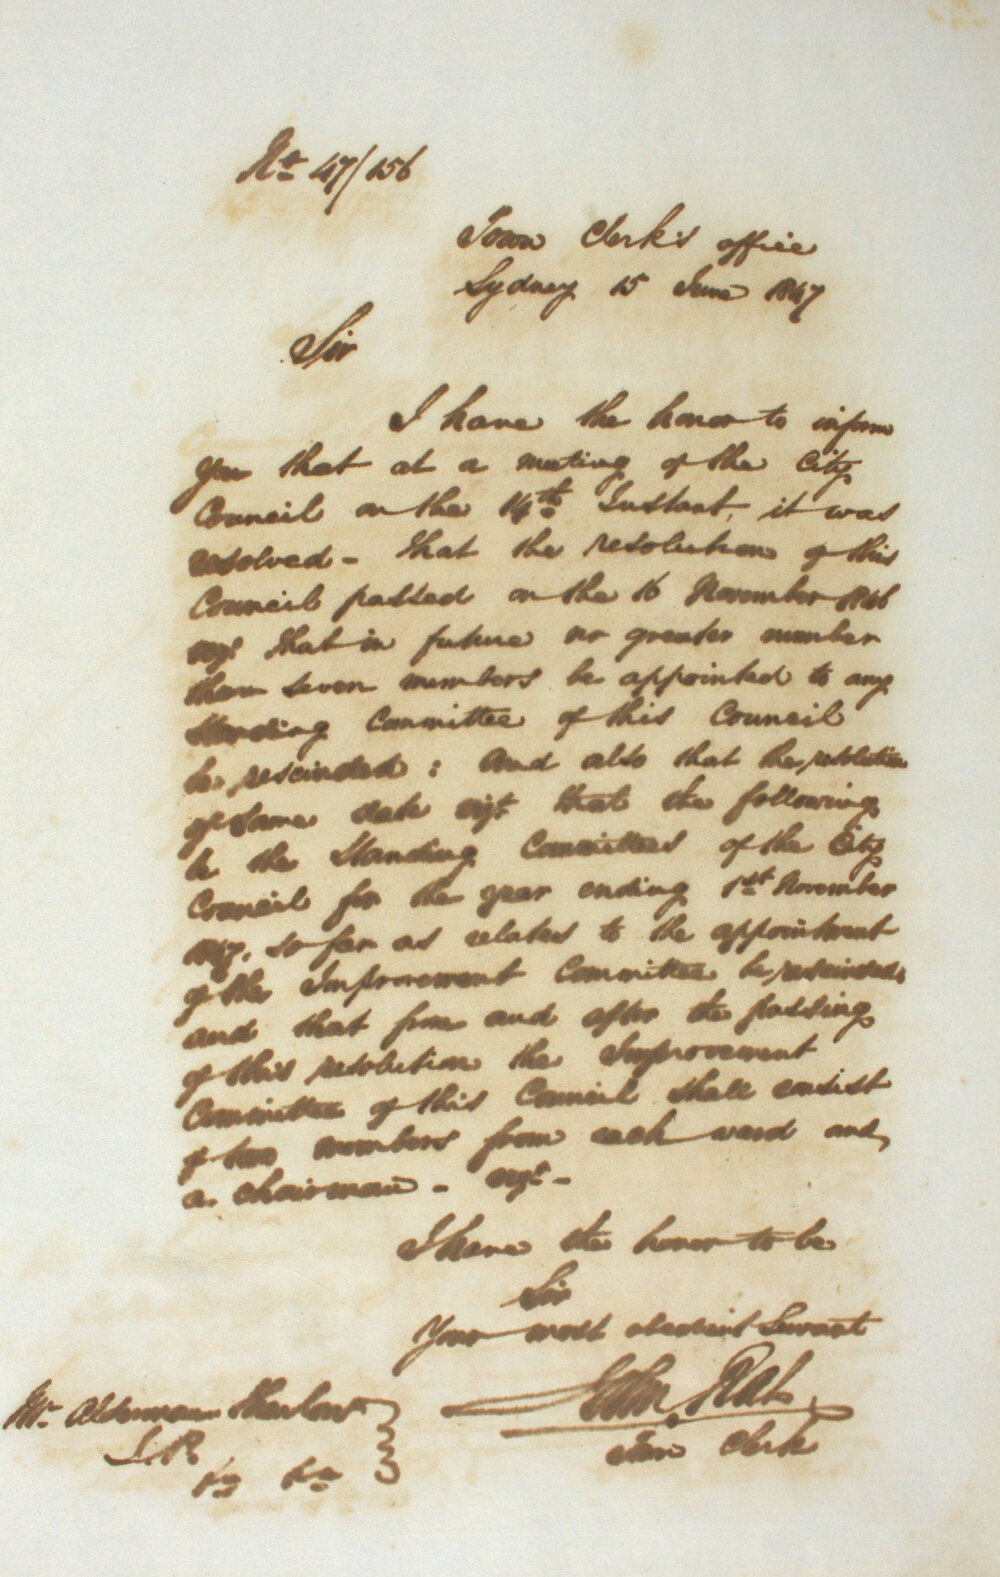 No 47/156
Town Clerk's office
Sydney 15 June 1847
Sir
I have the honor to inform
you that at a meeting of the City
Council on the 14th Instant, it was
resolved - that the resolution of this
Council passed on the 16 November 1846
vizt that in future no greater number
than seven members be appointed to any
Standing Committee of this Council
be rescinded : and also that the resolution
of same date vizt that the following
be the Standing Committees of the City
Council for the year ending 1st November
1847, so far as relates to the appointment
of the Improvement Committee be rescinded,
and that from and after the passing
of this resolution the Improvement
Committee of this Council shall consist
of two members from each ward and
a chairman - vizt -
I have the honor to be
Sir
Your most obedient Servant
John Rae
Town Clerk
Mr Alderman Thurlow